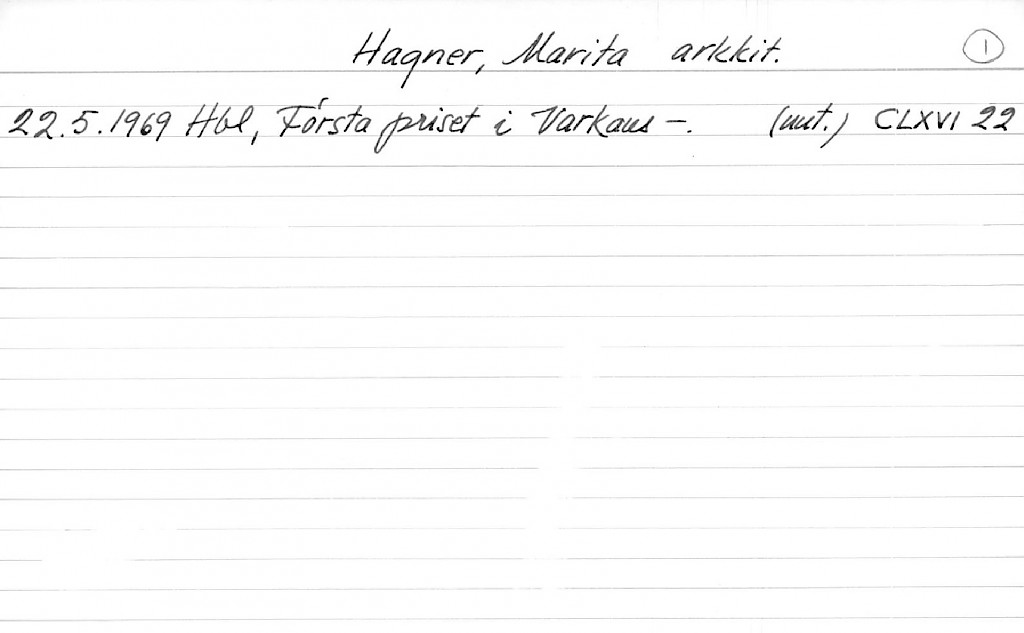 Hagner, Marita arkkit. 1
22.5.1969 Hbl, Första priset i Varkaus –. (uut.) CLXVI 22